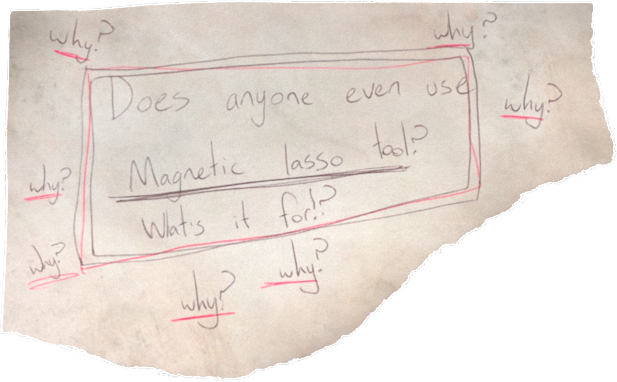 why?
why?
Does anyone even use
why?
Magnetic lasso tool?
why?
What's it for!?
why?
why?
why?